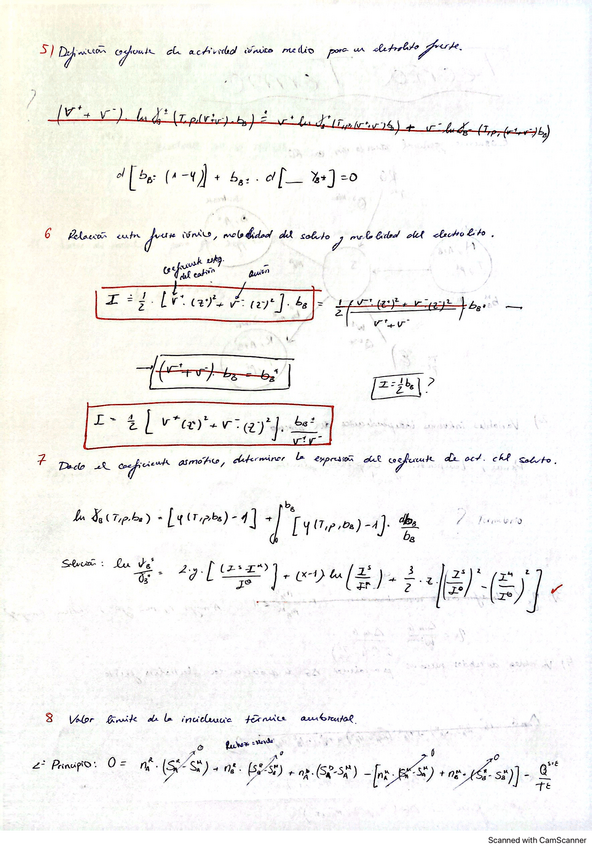 5) Definición coeficiente de actividad iónico medio para un electrolito fuerte.
?
(V⁺ + V⁻). ln γ± (T,p,(V⁺+V⁻).b_B) = V⁺ ln γ⁺(T,p,(V⁺+V⁻)b_B) + V⁻ ln γ⁻ (T,p,(V⁺+V⁻)b_B)
d[b_B± (1-φ)] + b_B± . d[__ γ_B±] = 0
6 Relación entre fuerza iónica, molalidad del soluto y molalidad del electrolito.
coeficiente esteq. del catión
Anión
I = 1/2 · [V⁺ · (z⁺)² + V⁻ · (z⁻)²] · b_B = 1/2 [(V⁺ (z⁺)² + V⁻ (z⁻)²)/(V⁺+V⁻)] b_B± →
→ (V⁺ + V⁻) · b_B = b_B±
I = 1/2 b_B ?
I = 1/2 [V⁺(z⁺)² + V⁻·(z⁻)²] · b_B±/V⁺V⁻
7 Dado el coeficiente osmótico, determinar la expresión del coeficiente de act. del soluto.
ln γ_B (T,p,b_B) = [φ(T,p,b_B) - 1] + ∫₀^{b_B} [φ(T,p,b_B) - 1] · db_B/b_B
Solución: ln = 2·y·[(Iˢ-Iᵘ)/I⁰] + (x-1) ln (Iˢ/Iᵘ) + 3/2 · z · [(Iˢ/I⁰)² - (Iᵘ/I⁰)²] ✓
8 Valor límite de la incidencia térmica ambiental.
2º Principio: 0 =
Scanned with CamScanner